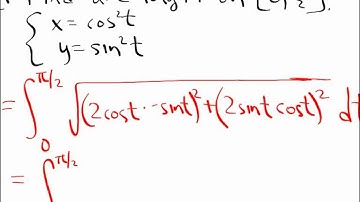 Find arc length on [0, π/2].
{ x = cos²t
y = sin²t
= ∫₀^{π/2} √((2cost · -sint)² + (2sint cost)²) dt
= ∫^{π/2}